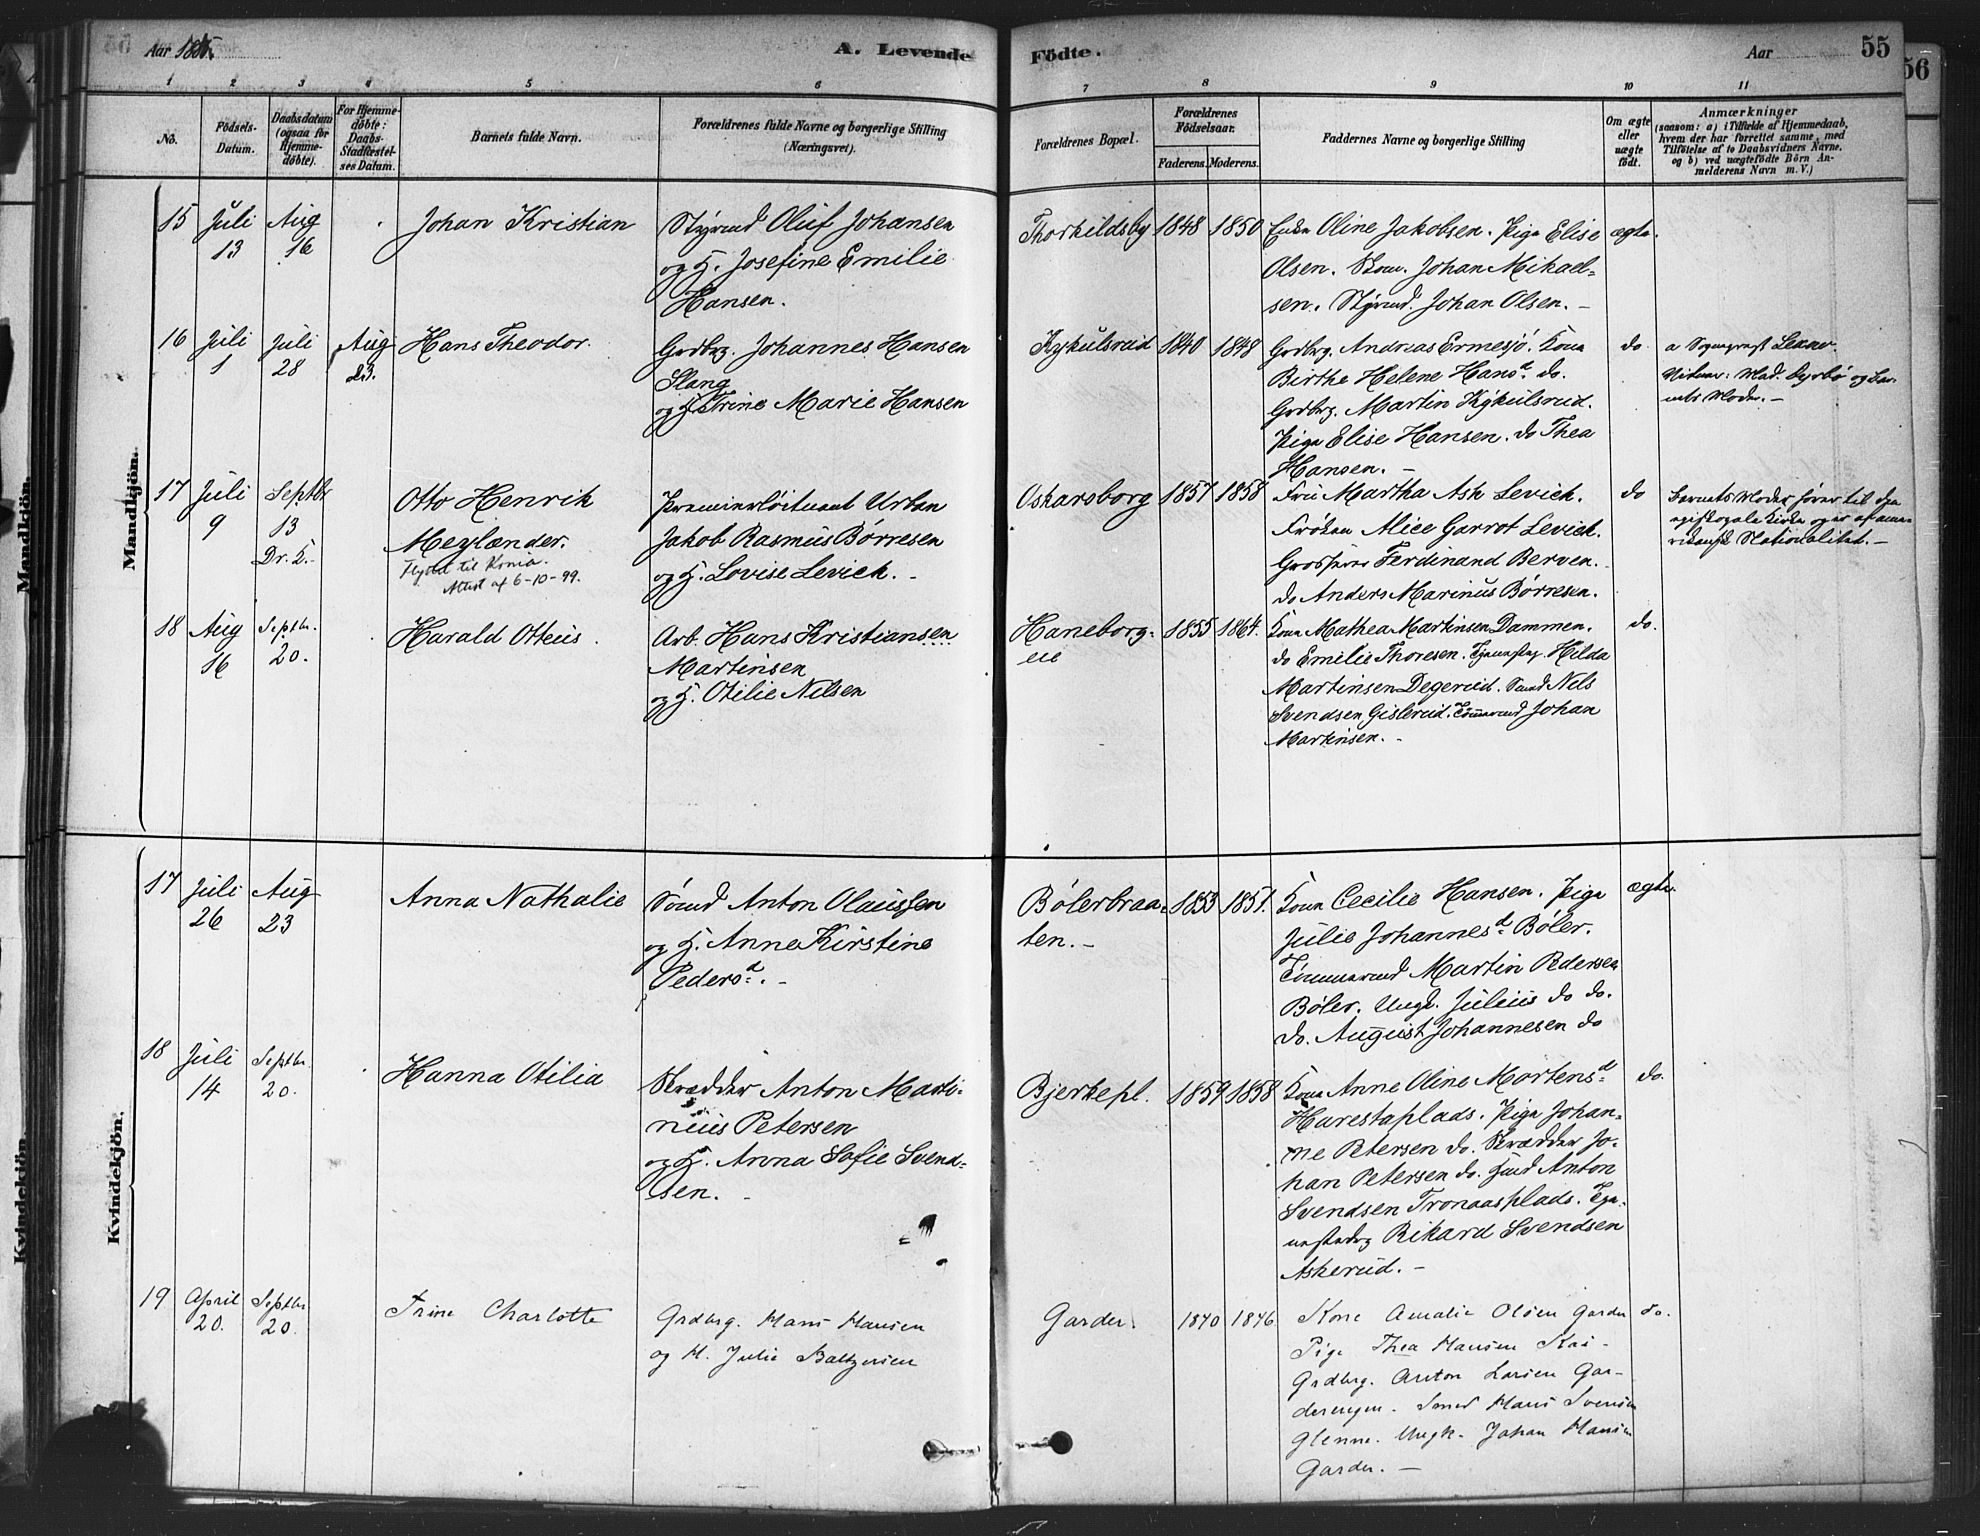 Aar 1885.
A. Levende Födte.
Aar
55
56
1 2 3 4 5 6 7 8 9 10 11
No.
Födsels-Datum.
Daabsdatum (ogsaa for Hjemme-döbte).
For Hjemme-döbte: Daabs-Stadfæstel-ses Datum.
Barnets fulde Navn.
Forældrenes fulde Navne og borgerlige Stilling (Næringsvei).
Forældrenes Bopæl.
Forældrenes Födselsaar.
Faderens. Moderens.
Faddernes Navne og borgerlige Stilling
Om ægte eller uægte födt.
Anmærkninger
(saasom: a) i Tilfælde af Hjemmedaab,
hvem der har forrettet samme, med
Tilföielse af to Daabsvidners Navne,
og b) ved uægtefödte Börn An-
melderens Navn m. V.)
Mandkjön.
15 Juli 13 Aug 16
Johan Kristian
Styrmd Oluf Johansen
og H. Josefine Emilie
Hansen.
Thorkildsby 1848 1850
Enke Oline Jakobsen. Pige Elise
Olsen. Skom. Johan Mikael-
sen. Styrmd. Johan Olsen. -
ægte.
16 Juli 1 Juli 28 Aug 23.
Hans Theodor.
Grdbrg. Johannes Hansen
Slang
og H. Trine Marie Hansen
Kykulsrud 1840 1848
Grdbrg. Andreas Ermesjö. Kone
Birthe Helene Hansd. do.
Grdbrg. Martin Kykulsrud.
Pige Elise Hansen. do Thea
Hansen. -
do.
a Sognepræst
Moder. -
17 Juli 9 Septbr 13 Dr. K.-
Otto Henrik
Meylænder.
Flyttet til Kr.nia.
Attest af 6-10-99.
Premierløitnant Urban
Jakob Rasmus Børresen
og H. Lovise Levick. -
Oskarsborg 1857 1858
Fru Martha Ash Levick.
Frøken Alice Garrot Levick.
Grosserer Ferdinand Berven.
do Anders Marinus Børresen.
do
Barnets Moder hører til den
episkopale Kirke og er af ame-
rikansk Nationalitet. -
18 Aug 16 Septbr. 20.
Harald Otteus.
Arb. Hans Kristiansen
Martinsen
og H. Otilie Nilsen
Haneborg-
eie
1855 1864.
Kone Mathea Martinsen Dammen.
do Emilie Thoresen. Hilda
Martinsen Degerud. Nils
Svendsen Gislerud. Tömmermd Johan
Martinsen. -
do.
Kvindekjön.
17 Juli 26 Aug 23
Anna Nathalie
Sømd Anton Olaussen
og H. Anne Kirstine
Pedersd. -
Bölerbraa-
ten. -
1853 1851.
Kone Cecilie Hansen. Pige
Julie Johannesd. Bøler.
Tömmermd Martin Pedersen
Bøler. Ungk. Julius do do.
do. August Johannesen do
ægte.
18 Juli 14 Septbr. 20.
Hanna Otilia
Skrædder Anton Marti-
nius Petersen
og H. Anna Sofie Svend-
sen. -
Bjerkepl. 1859 1858
Kone Anne Oline Mortensd.
Harestaplads. Pige Johan-
ne Petersen do. Skrædder Jo-
han Petersen do. Anton
Svendsen Tronaasplads.
Rikard Svendsen
Askerud. -
do.
19 April 20. Septbr 20.
Trine Charlotte
Grdbrg. Hans Hansen
og H. Julie Baltzersen
Garder. 1840 1846
Kone Amalie Olsen Garder
Pige Thea Hansen Kas-
Grdbrg. Anton Larsen Gar-
derengen. Smed Hans Svensen
Glenne. Ungk. Johan Hansen
Garder. -
do.
Mandkjön.
Kvindekjön